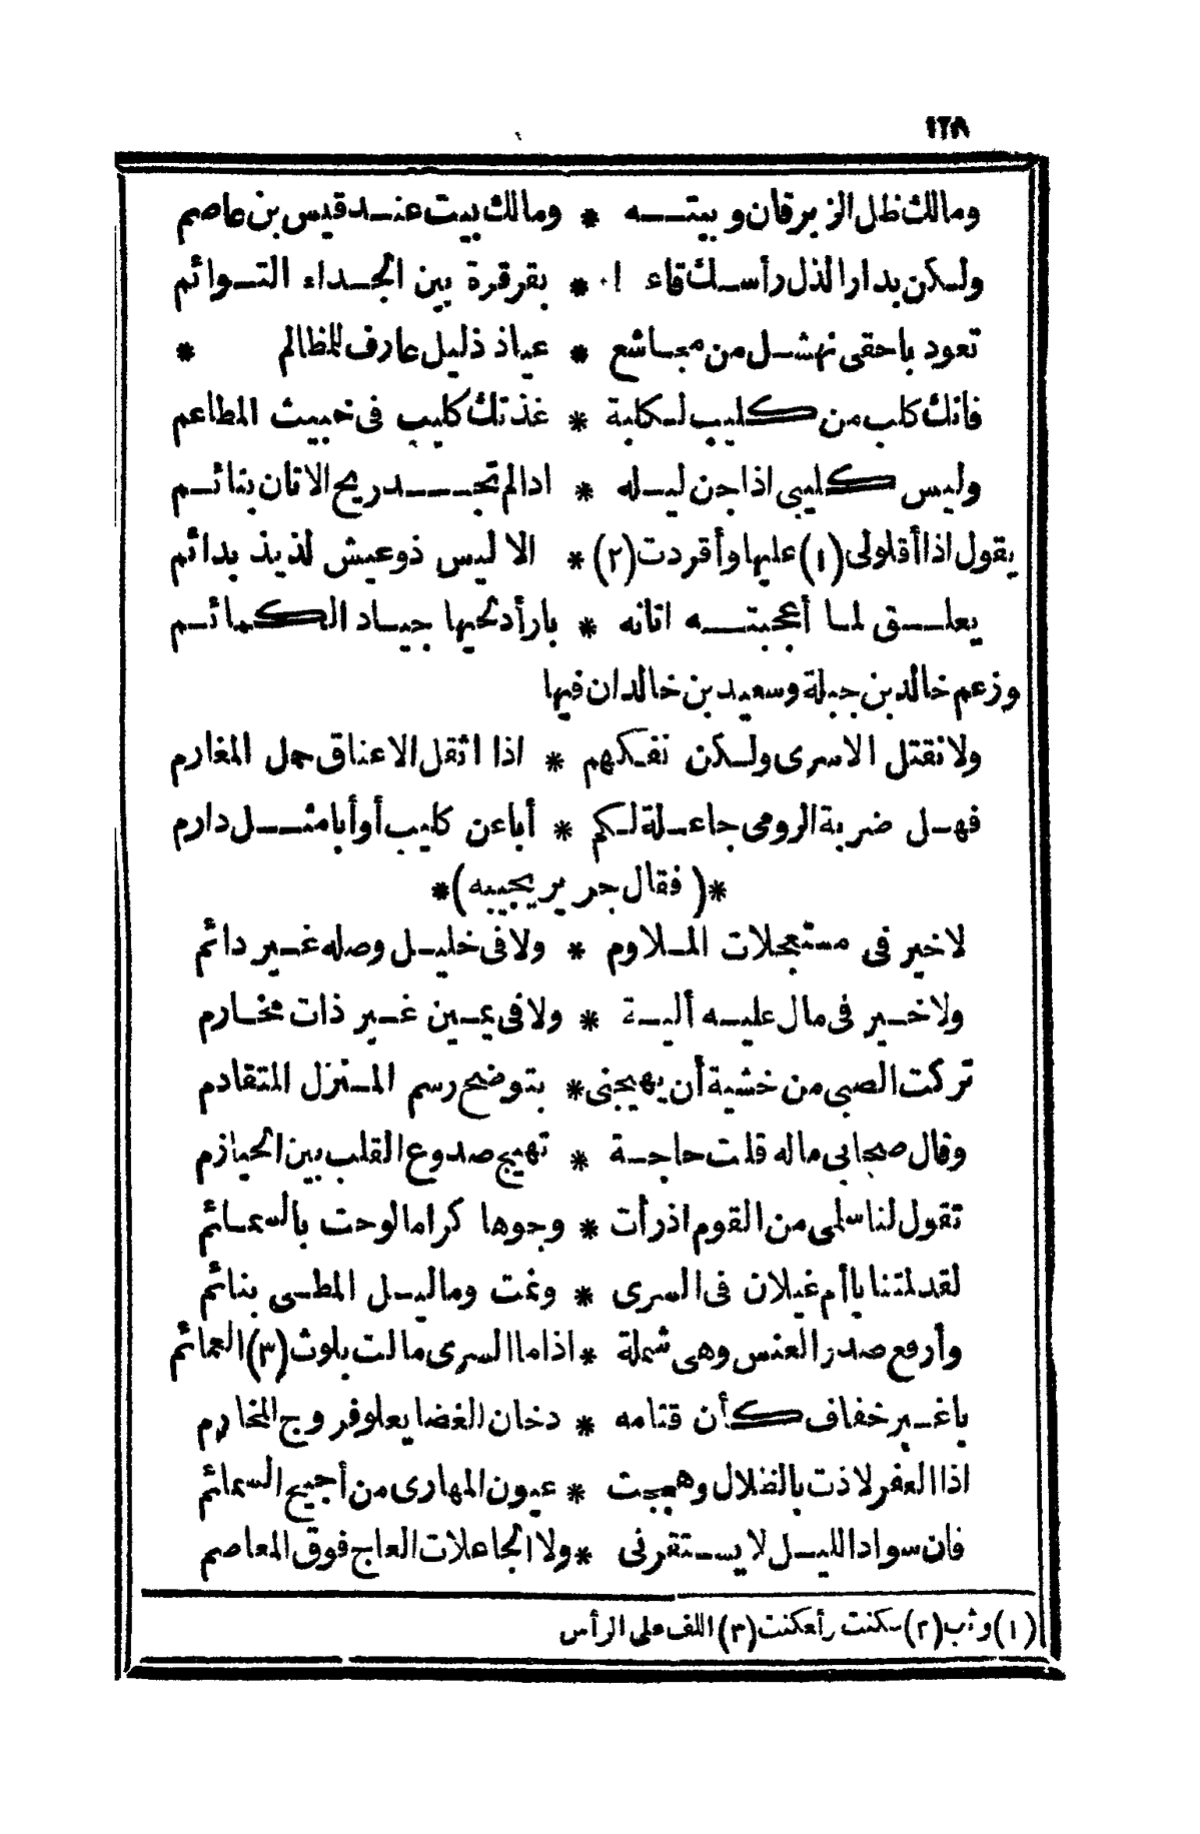 ١٢٨
ومالك ظل الزبرقان وبيته * ومالك بيت عند قيس بن عاصم
ولكن بدا رالذل رأسك قاء ا * بقرقرة بين الجداء التوائم
تعود باحقى نهشل من مجاشع * عياذ ذليل عارف للمظالم *
فانك كلب من كليب لكلبة * غذتك كليب فى خبيث المطاعم
وليس كليبى اذا جن ليله * ادالم تجد ريح الاتان بنائم
يقول اذا أقلولى (١) عليها وأقردت (٢) * الا ليس ذو عيش لذيذ بدائم
يعلق لما أعجبته اتانه * بارأد لحيها جياد الكمائم
وزعم خالد بن جبلة وسعيد بن خالد ان فيها
ولا نقتل الاسرى ولكن نفكهم * اذا اثقل الاعناق حمل المغارم
فهل ضربة الرومى جاعلة لكم * أبا عن كليب أو أبا مثل دارم
*( فقال جرير يجيبه )*
لا خير فى مستعجلات الملاوم * ولا فى خليل وصله غير دائم
ولا خير فى مال عليه ألية * ولا فى يمين غير ذات مخارم
تركت الصبى من خشية أن يهيجنى * بتوضح رسم المنزل المتقادم
وقال صحابى ماله قلت حاجة * تهيج صدوع القلب بين الحيازم
تقول لنا سلمى من القوم اذ رأت * وجوها كراما لوحت بالسمائم
لقد لمتنا يا أم غيلان فى السرى * ونمت وما ليل المطى بنائم
وأرفع صدر العنس وهى شملة * اذا ما السرى مالت بلوث (٣) العمائم
باغبر خفاف كأن قتامه * دخان الغضا يعلو فروج المخارم
اذا العفر لاذت بالظلال وهججت * عيون المهارى من أجيج السمائم
فان سواد الليل لا يستقرنى * ولا الجاعلات العاج فوق المعاصم
(١) وثب (٢) سكنت رأعكنت (٣) اللف على الرأس